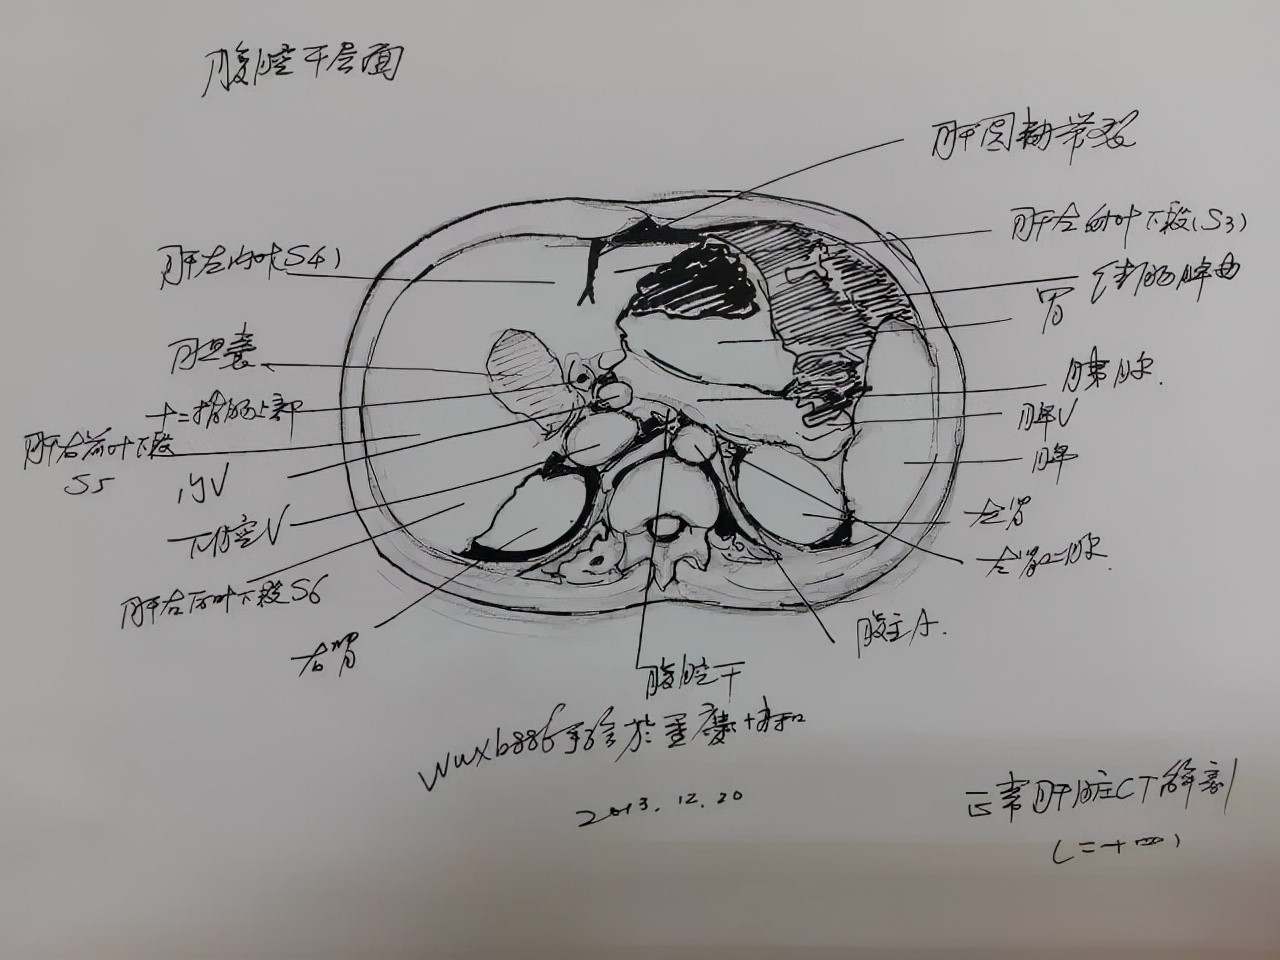 腹腔干层面
肝圆韧带裂
肝左外叶下段(S3)
结肠脾曲
胃
胰尾
脾V
脾
左肾
左肾上腺
腹主A.
腹腔干
肝左内叶S4)
胆囊
十二指肠上部
肝右前叶下段
S5
门V
下腔V
肝右后叶下段S6
右肾
wwxb886手绘於重庆
2013.12.20
正常肝脏CT解剖
(二十四)